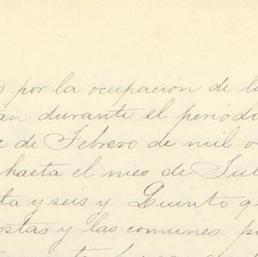 s por la ocupacion de l
an durante el periodo
e de Febrero de mil o
hasta el mes de Jul
ta y seis y Quinto q
ostas y las comunes p